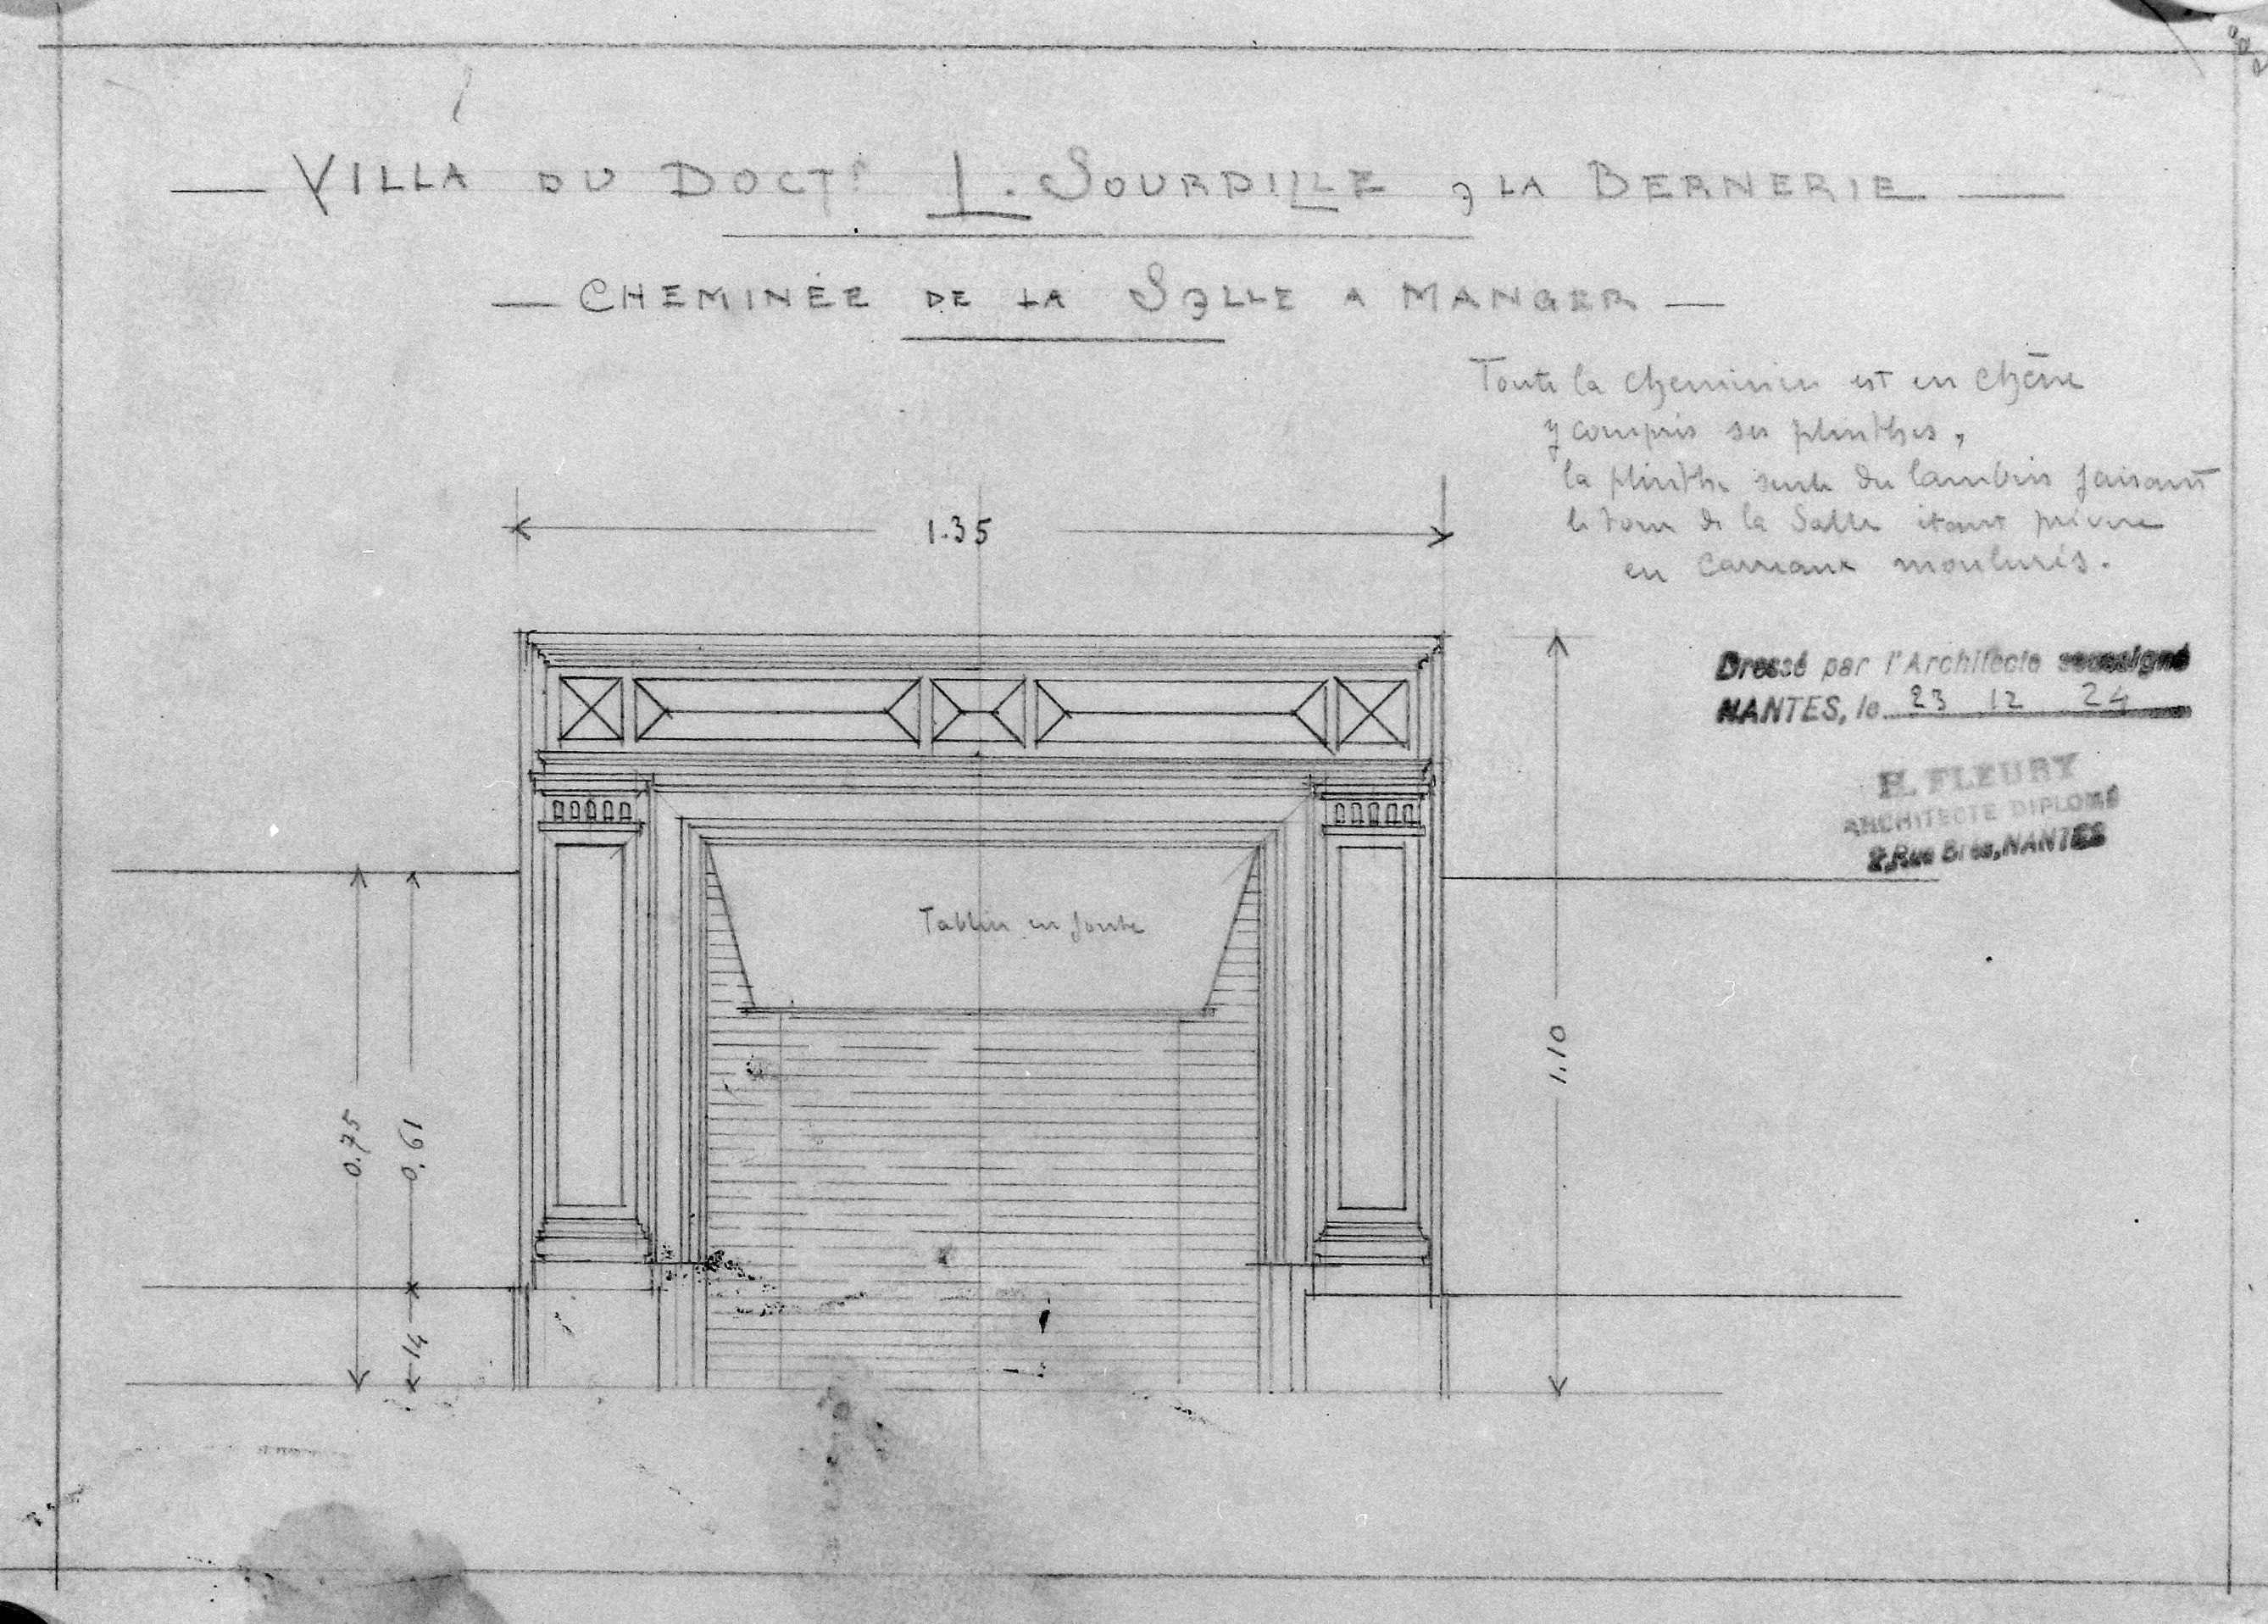 — VILLA DU DOCTr L. SOURDILLE à LA BERNERIE —
— CHEMINÉE DE LA SALLE A MANGER —
Toute la cheminée est en chêne
y compris ses plinthes,
la plinthe seule du lambris faisant
le tour de la Salle étant prévue
en carreaux moulurés.
1.35
Dressé par l'Architecte soussigné
NANTES, le 23 12 24
H. FLEURY
ARCHITECTE DIPLOMÉ
Rue NANTES
Tablier en fonte
0.75
0.61
14
1.10